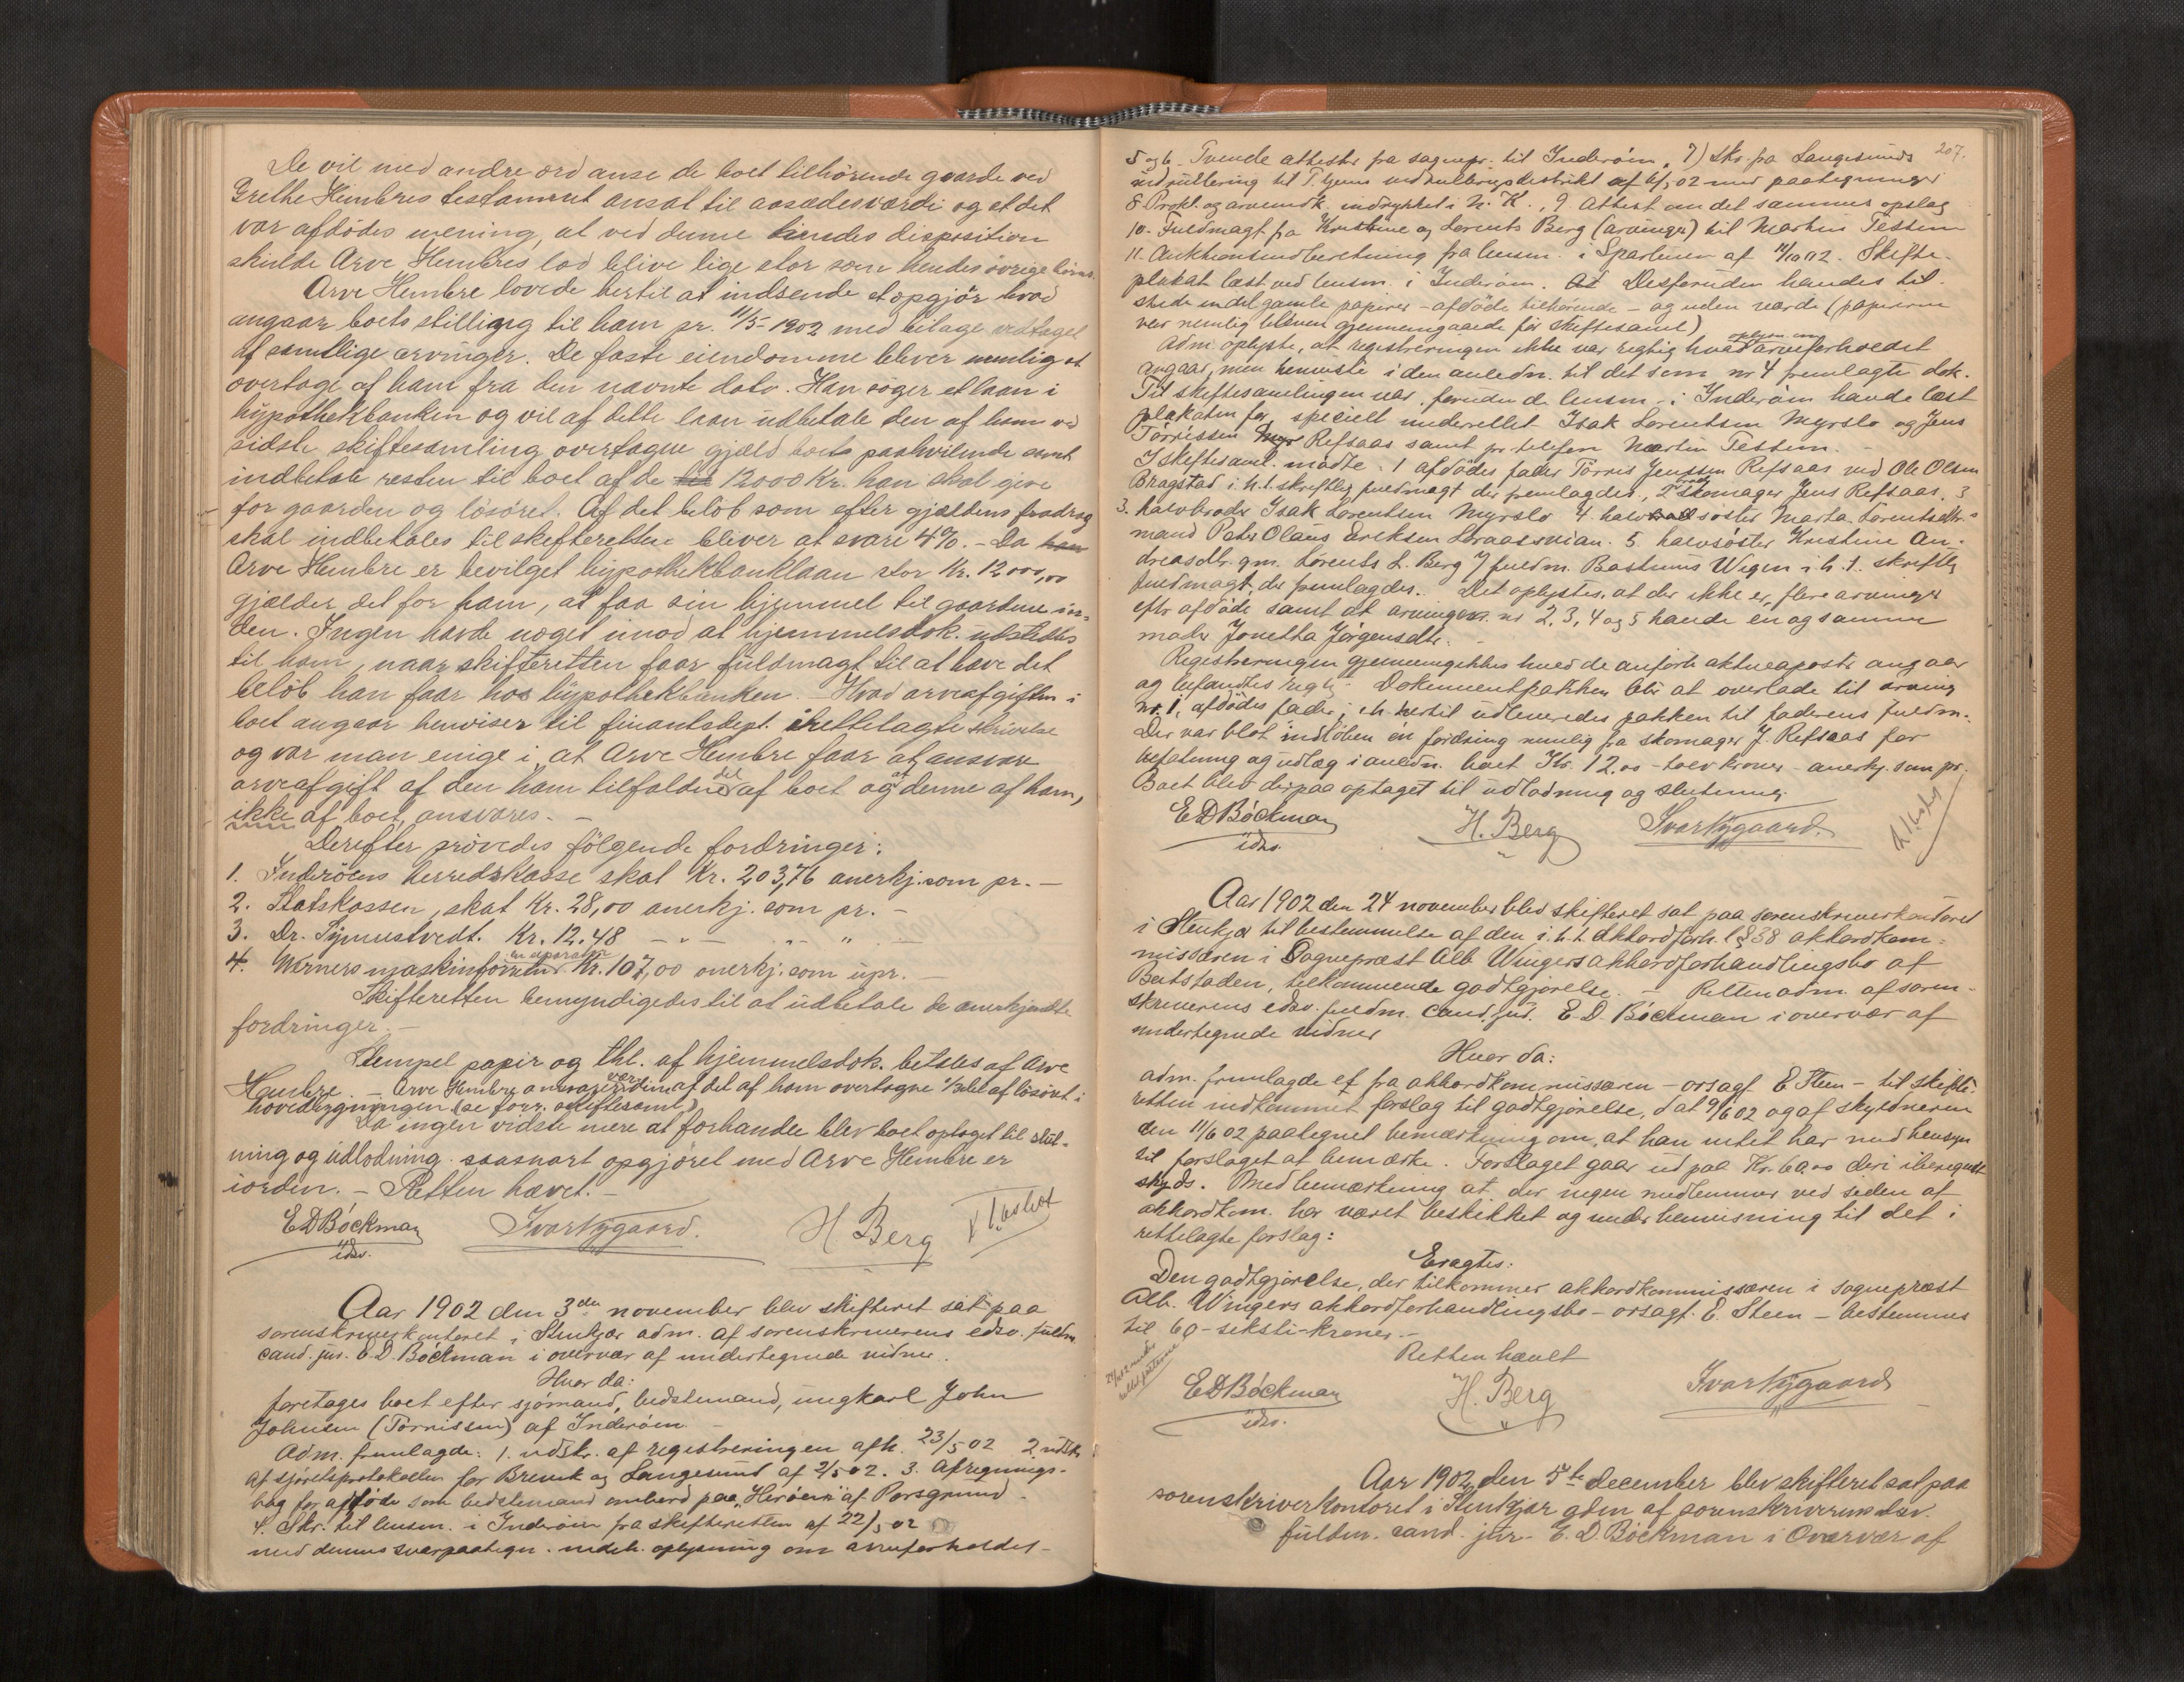 De vil med andre ord anse de boet tilhörende gaarde ved
Grethe Hembres testament ansat til aasædesværdi og at det
var afdödes mening, at ved denne hendes disposition
skulde Arve Hembres lod blive lige stor som hendes övrige börns.
Arve Hembre lovede hertil at indsende et opgjör hvad
angaar boets stilling til ham pr. 11/5 1902 med bilage vedtaget
af samtlige arvinger. De faste eiendomme bliver nemlig at
overtage af ham fra den nævnte dato. Han söger et laan i
hypothekbanken og vil af dette laan udbetale den af ham ved
sidste skiftesamling overtagne gjæld boets paahvilende samt
indbetale resten til boet af de 12000 Kr. han skal give
for gaarden og lösöret. Af det belöb som efter gjældens fradrag
skal indbetales til skifteretten bliver at svare 4%. - Da
Arve Hembre er bevilget hypothekbanklaan stor Kr. 12000,00
gjælder det for ham, at faa sin hjemmel til gaardene i or-
den. Ingen havde noget imod at hjemmelsdok. udstedes
til ham, naar skifteretten faar fuldmagt til at hæve det
belöb han faar hos hypothekbanken. Hvad arveafgiften i
boet angaar henvises til finantsdept. irettelagte skrivelse
og var man enige i at Arve Hembre faar at ansvare
arveafgift af den ham tilfaldne del af boet og at denne af ham,
ikke af boet, ansvares. -
Derefter prövedes fölgende fordringer:
1. Inderöens herredskasse skat Kr. 203,76 anerkj. som pr. -
2. Statskassen, skat Kr. 28,00 anerkj. som pr. -
3. Dr. Tymustvedt. Kr. 12.48 - " - " "
4. Werners maskinforretn. en separator Kr. 107,00 anerkj. som upr. -
Skifteretten bemyndigedes til at udbetale de anerkjendte
fordringer. -
Stempel papir og thl. af hjemmelsdok. betales af Arve
Hembre. - Arve Hembre ansvarer værdien af det af ham overtagne 1/2 del af lösöret i
hovedbygningen (se forr. skiftesaml.)
Da ingen vidste mere at forhandle blev boet optaget til slut-
ning og udlodning saasnart opgjöret med Arve Hembre er
iorden. - Retten hævet. -
E D Böckman
edsv.
Ivar Nygaard.
H Berg
Aar 1902 den 3die november blev skifteret sat paa
sorenskriverkontoret i Stenkjær adm. af sorenskriverens edsv. fuldm
cand. jur. E. D. Böckman i overvær af undertegnede vidner.
Hvor da:
foretages boet efter sjömand, bedstemand, ungkarl John
Johnsen (Törrissen) af Inderöen. -
Adm. fremlagde: 1. udskr. af registreringen afh. 23/5 02 2 udskr
af sjöretsprotokollen for Brevik og Langesund af 2/5 02. 3. Afregnings-
bog for afdöde som bedstemand ombord paa "Heröen" af Porsgrund -
4. Skr. til lensm. i Inderöen fra skifteretten af 22/5 02
med dennes svarpaategn. indeh. oplysning om arveforholdet -
207.
5 og 6. Tvende attester fra sognepr. til Inderöen, 7) skr. fra Langesunds
indrullering til T.hjems indrulleringsdistrikt af 6/5 02 med paategninger
8. Prokl. og arveindk. indrykket i N. K., 9. Attest om det sammes opslag
10. Fuldmagt fra Kristine og Lorents Berg (arvinger) til Martin Tessem
11. Auktionsindberetning fra lensm. i Sparbuen af 14/10 02. Skifte-
plakat læst ved lensm. i Inderöen. Desforuden havdes til-
stede endel gamle papirer - afdöde tilhörende - og uden værdi (papirerne
var nemlig bleven gjennemgaaede för skiftesaml)
Adm. oplyste, at registreringen ikke var rigtig hvad oplysn. om arveforholdet
angaar, men henviste i den anledn. til det som nr 4 fremlagte dok.
Til skiftesamlingen var, foruden de lensm. i Inderöen havde læst
plakaten for, specielt underrettet Isak Lorentsen Myrslo og Jens
Törrissen Refsaas samt pr. telefon Martin Tessem. -
I skiftesaml. mödte: 1 afdödes fader Törris Jenssen Refsaas ved Ole Olsen
Bragstad i h. t. skriftlig fuldmagt der fremlagdes, 2 brod. skomager Jens Refsaas. 3
3. halvbroder Isak Lorentsen Myrslo 4. halvsöster Marta Lorentsdtr.s
mand Peter Olaus Eriksen Loraasvian. 5. halvsöster Kristine An-
dreasdtr. gm. Lorents L. Berg ved fuldm. Bastinus Wigen i h. t. skriftlig
fuldmagt, der fremlagdes. Det oplystes at der ikke er flere arvinger
eftr afdöde samt at arvingerne nr 2, 3, 4 og 5 havde en og samme
moder Jonetta Jörgensdtr. -
Registreringen gjennemgikkes hvad de anförte aktivaposter angaar
og befandtes rigtig. Dokumentpakken blir at overlade til arving
nr. 1, afdödes fader; i h. hertil udleveredes pakken til faderens fuldm.
Der var blot indlöben én fordring nemlig fra skomager J. Refsaas for
befatning og udlæg i anledn. boet Kr. 12.00 - tolv kroner - anerkj. som pr.
Boet blev derpaa optaget til udlodning og slutning.
E D Böckman
edsv.
H. Berg
Ivar Nygaard.
Aar 1902 den 24 november blev skifteret sat paa sorenskriverkontoret
i Stenkjær til bestemmelse af den i. h. t. akkordforh. l § 38 akkordkom-
missæren i Sognepræst Alb. Wingers akkordforhandlingsbo af
Beitstaden, tilkommende godtgjörelse. - Retten adm. af soren-
skriverens edsv. fuldm. cand. jur. E. D. Böckman i overvær af
undertegnede vidner
Hvor da:
adm. fremlagde et fra akkordkommissæren - orsagf. E Steen - til skifte-
retten indkommet forslag til godtgjörelse, dat 9/6 02 og af skyldneren
den 11/6 02 paategnet bemærkning om, at han intet har med hensyn
til forslaget at bemærke. Forslaget gaar ud paa Kr. 60.00 deri iberegnet
skyds. Med bemærkning at der ingen medlemmer ved siden af
akkordkom. har været beskikket og under henvisning til det i
rettelagte forslag:
Eragtes:
Den godtgjörelse, der tilkommer akkordkommissæren i sognepræst
Alb. Wingers akkordforhandlingsbo - orsagf. E. Steen - bestemmes
til 60 - seksti - kroner. -
Retten hævet
E D Böckman
edsv.
H. Berg
Ivar Nygaard
Aar 1902 den 5te december blev skifteret sat paa
sorenskriverkontoret i Stenkjær adm af sorenskriverens edsv.
fuldm. cand. jur. E. D. Böckman i Overvær af